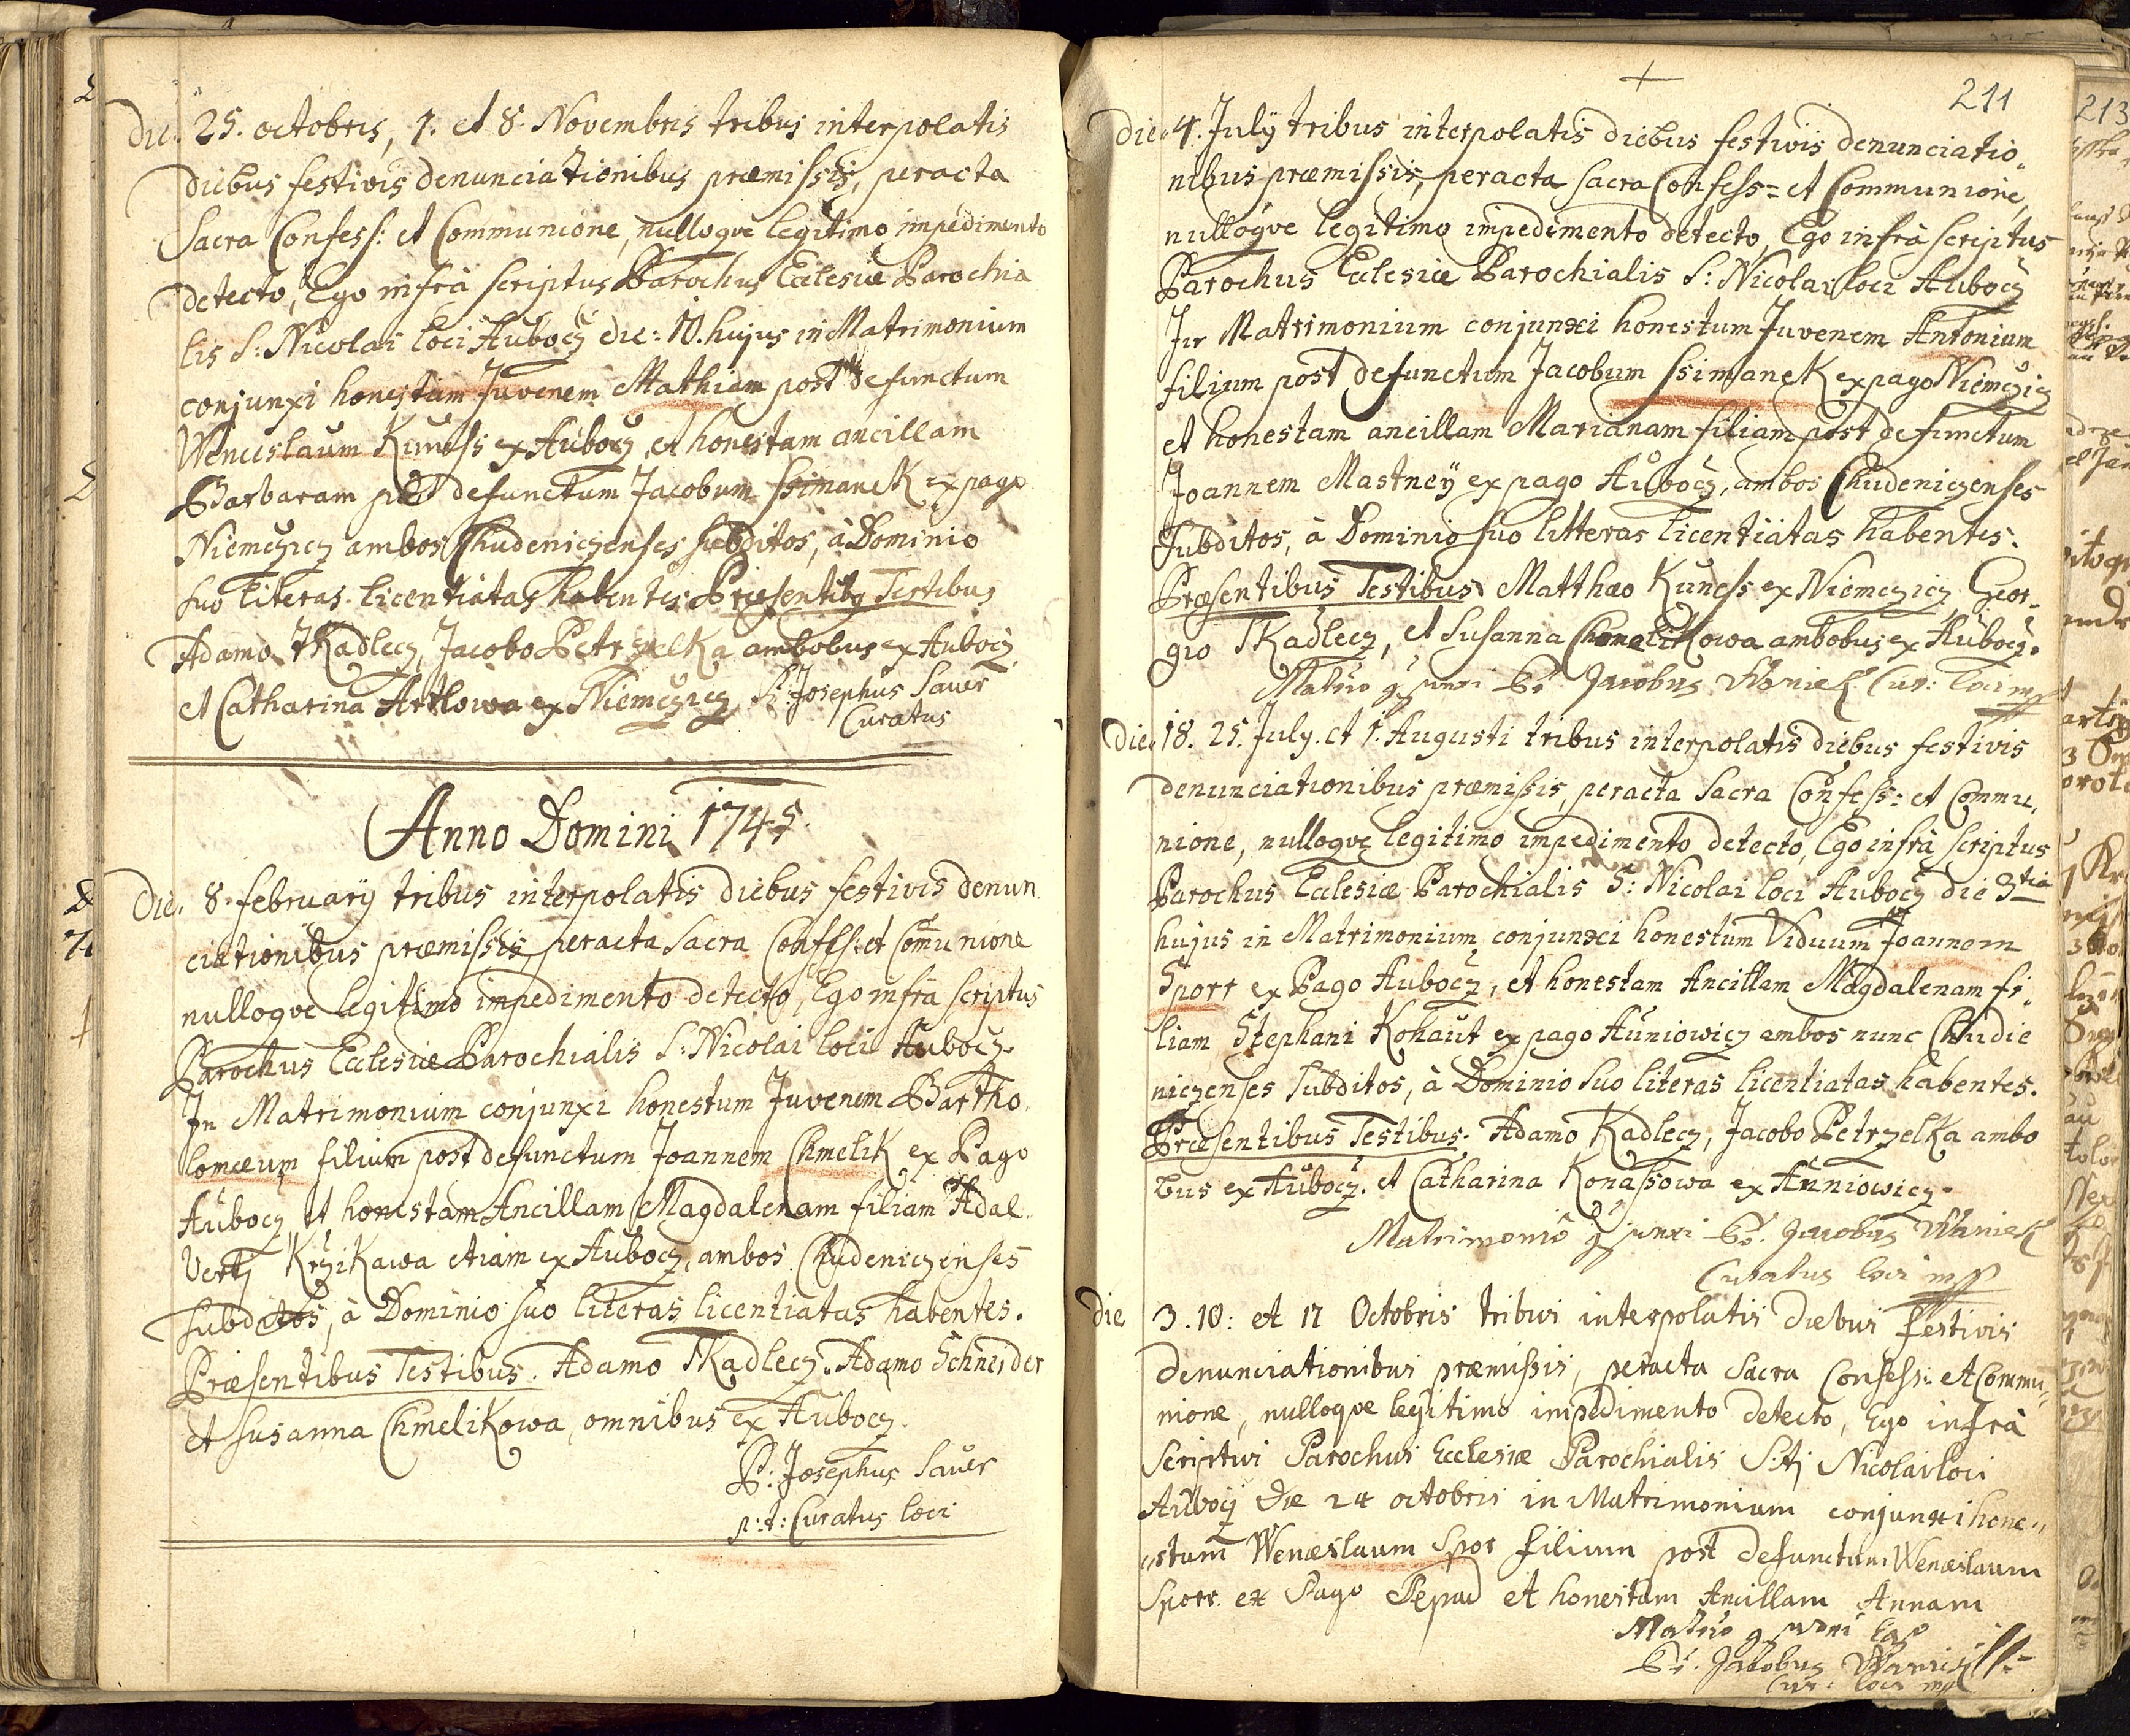 Die. 25. octobris, 1. et 8. Novembris tribus interpolatis
diebus festivis denunciationibus præmissis, peracta
Sacra Confess: et Communione, nulloqve legitimo impedimento
detecto, Ego infrà scriptus Parochus Ecclesiæ Parochia
lis S: Nicolai loci Aúbocz die: 10. hujus in Matrimonium
conjunxi honestum Juvenem Mathiam post defunctum
Wenceslaum Kuness ex Aúbocz, et honestam ancillam
Barbaram post defunctum Jacobum Ssimanek ex pago
Niemczicz ambos Chudeniczenses subditos, à Dominio
suo literas licentiatas habentes Præsentibg Testibus
Adamo Tkadlecz, Jacobo Petrzelka ambobus ex Aubocz
et Catharina Artlowa ex Niemczicz, P: Josephus Sauer
Curatus
Anno Domini 1745.
Die. 8. february tribus interpolatis diebus festivis denun
ciationibus præmissis, peracta sacra Confess: et Com̃unione
nulloqve legitimo impedimento detecto, Ego infrà scriptus
Parochus Ecclesiæ Parochialis S: Nicolai loci Aubocz.
In Matrimonium conjunxi honestum Juvenem Bartho
lomæum filium post defunctum Joannem Chmelik ex Pago
Aubocz et honestam Ancillam Magdalenam filiam Adal
berti Krzikawa etiam ex Aubocz, ambos Chudeniczenses
subditos, à Dominio suo literas licentiatas habentes.
Præsentibus Testibus. Adamo Tkadlecz. Adamo Schneider
et Susanna Chmelikowa, omnibus ex Aubocz.
P: Josephus Sauer
p: t: Curatus loci
211
die. 4. July tribus interpolatis diebus festivis denunciatio
nibus præmissis, peracta sacra Confess= et Communione,
nulloqve legitimo impedimento detecto, Ego infrà scriptus
Parochus Ecclesiæ Parochialis S: Nicolai loci Aubocz
In Matrimonium conjunxi honestum Juvenem Antonium
filium post defunctum Jacobum Ssimanek ex pago Niemczicz
et honestam ancillam Marianam filiam post defunctum
Joannem Mastney ex pago Aubocz, ambos Chudeniczenses
Subditos, à Dominio suo litteras licentiatas habentes.
Præsentibus Testibus Matthæo Kuness ex Niemczicz Geor
gio Tkadlecz, et Susanna Chmelikowa ambobus ex Aubocz.
Jacobus Waniek Cur: loci
Die. 18. 25. July. et 1. Augusti tribus interpolatis diebus festivis
denunciationibus præmissis, peracta sacra Confess: et Commu
nione, nulloqve legitimo impedimento detecto, Ego infrà scriptus
Parochus Ecclesiæ Parochialis S: Nicolai loci Aubocz die 3tia
hujus in Matrimonium conjunxi honestum Viduum Joannem
Sporr ex Pago Aubocz, et honestam Ancillam Magdalenam fi
liam Stephani Kohaut ex pago Auniowicz ambos nunc Chudie
niczenses subditos, à Dominio suo literas licentiatas habentes.
Præsentibus Testibus. Adamo Kadlecz, Jacobo Petrzelka ambo
bus ex Aubocz. et Catharina Konassowa ex Auniowicz.
Matrimonio Jacobus Waniek
Curatus loci
die 3. 10: et 17 Octobris tribus interpolatis diebus festivis
denunciationibus præmissis, peracta sacra Confess: et Commu
nione, nulloqve legitimo impedimento detecto, Ego infrà
scriptus Parochus Ecclesiæ Parochialis S:ti Nicolai loci
Aubocz die 24 octobris in Matrimonium conjunxi hone
stum Wenceslaum Spor filium post defunctum Wenceslaum
Sporr. ex Pago Slepad et honestam Ancillam Annam
Jacobus Waniek
Cur: loci
213